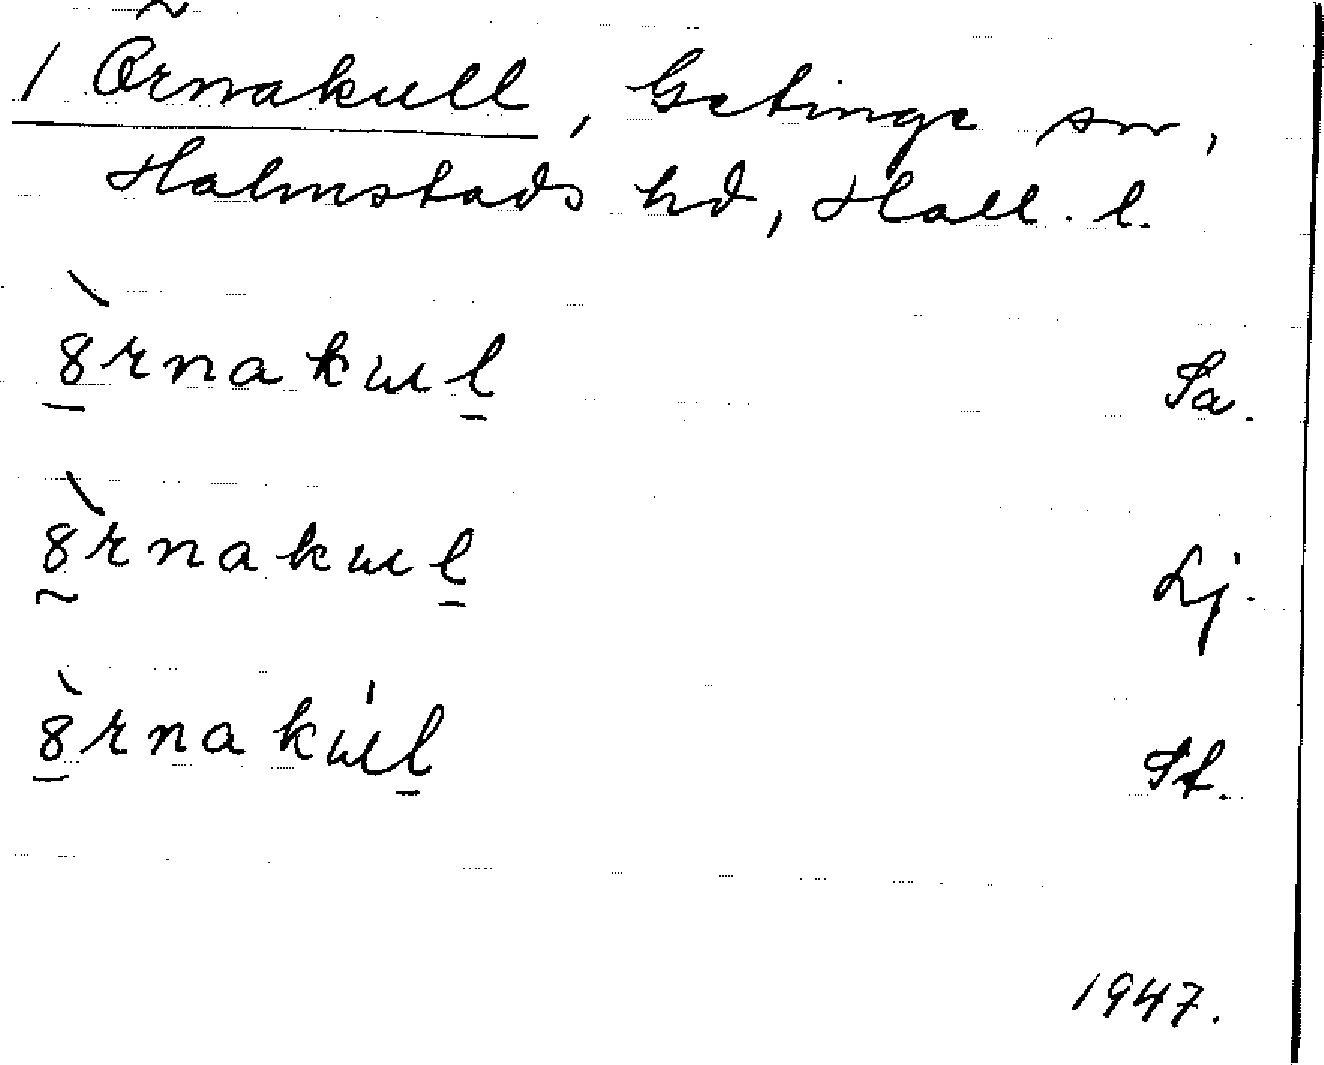 1 Örnakull, Getinge sn,
Halmstads hd, Hall. l.
8̱̀rnakɯḻ Sa.
8̰̀rnakɯḻ Lj.
8̱̀rnakɯ́ḻ St.
1947.